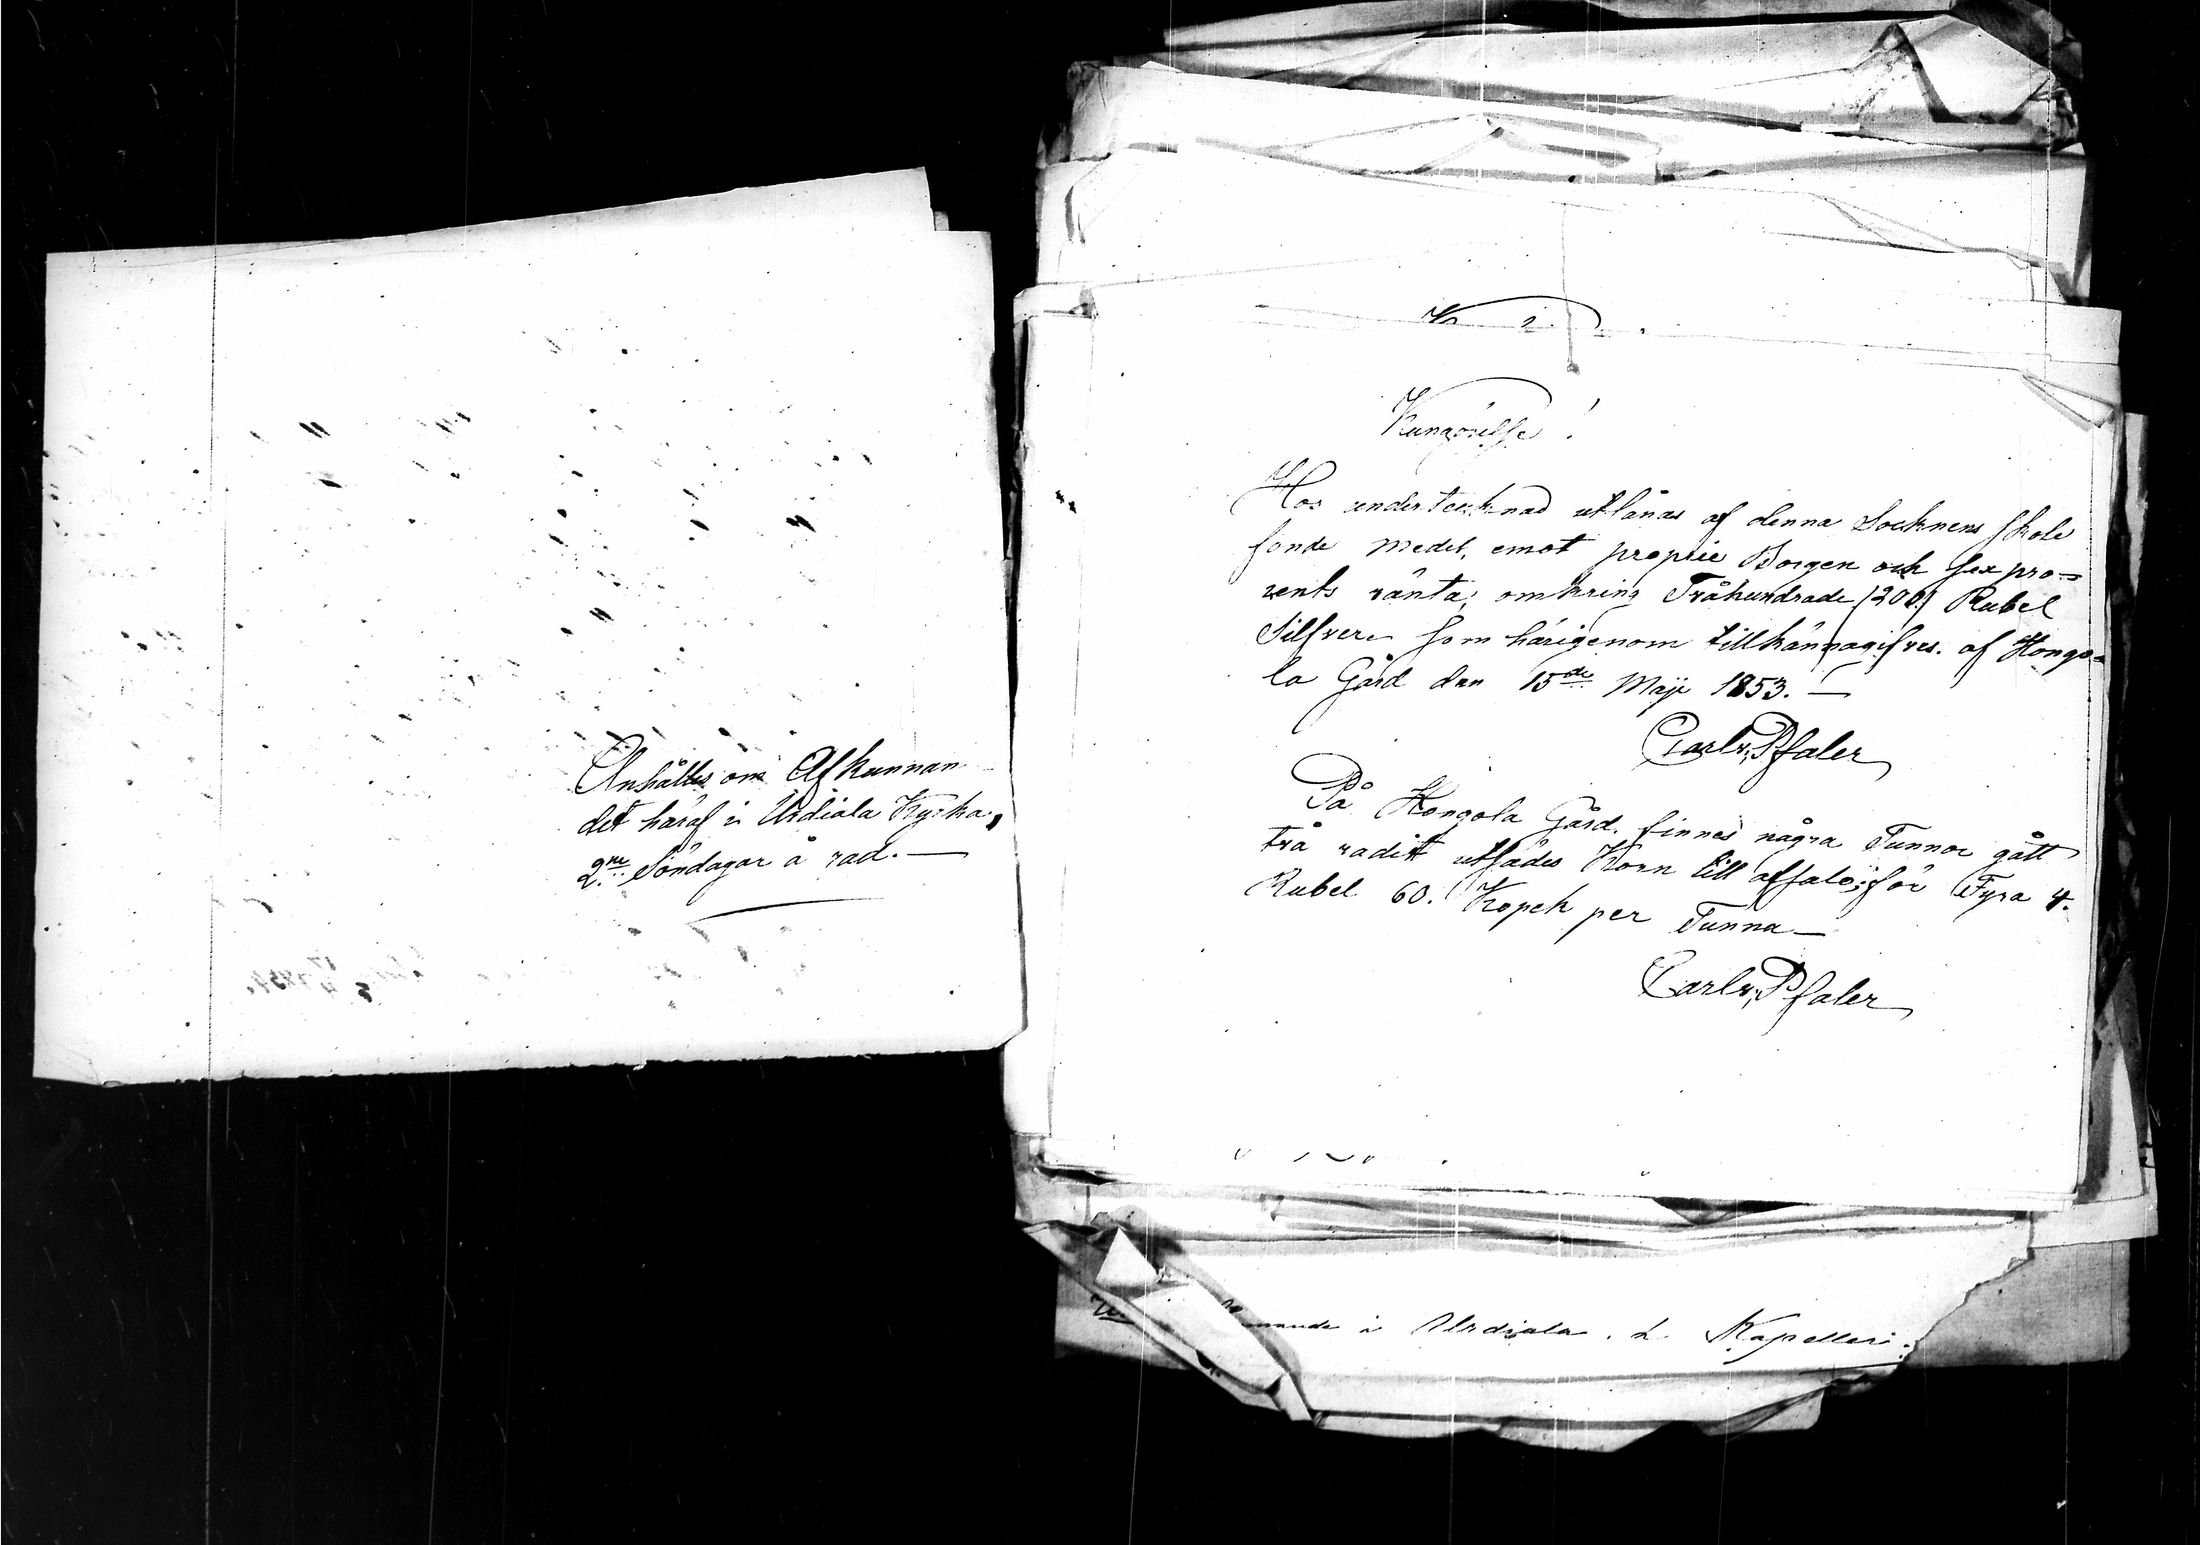 Anhålles om Afkunnan
det häraf i Urdiala Kyrka,
2ne Söndagar å rad.—
Kungörelse!
Hos undertecknad utlånas af denna Socknens skole
fonde medel, emot proprie Borgen och sex pro=
cents ränta, omkring Tvåhundrade (200) Rubel
Silfver. som härigenom tillkännagifves. af Hongo=
la Gård den 15de Maji 1853.—
Carl v. Pfaler
På Hongola Gård. finnes några Tunnor gått
två radigt utsädes Korn till afsalu; för Fyra 4.
Rubel 60. Kopek per Tunna—
Carl v. Pfaler
i Urdiala Kapelleri